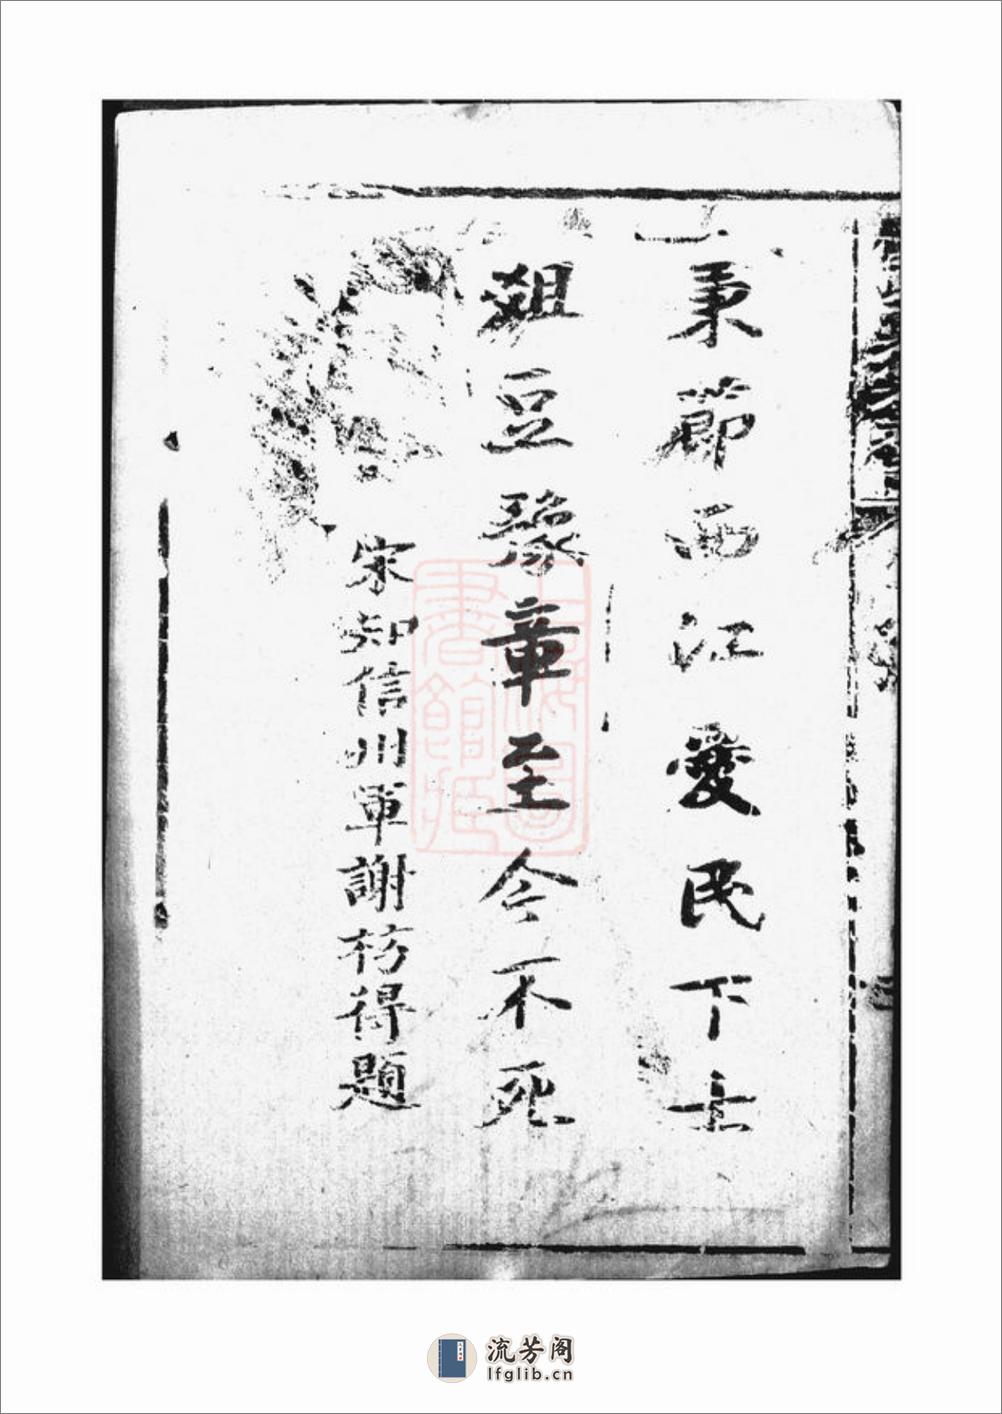 秉節西江愛民下士
俎豆豫章至今不死
宋知信州軍謝枋得題
上海圖書館藏
流芳阁
lfglib.cn